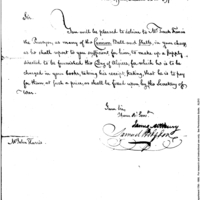 Sir
You will be pleased to deliver to Mr Tench Francis
the Purveyor, as many of the Cannon Ball and Shells, in your charge
as shall report to you sufficient for him, to make up a supply
directed to be furnished the Dey of Algiers, for which he is to be
charged in your books, taking his receipt stating, that he is to pay
for them at such a price, as shall be fixed upon by the Secretary of
War.
I am Sir,
Samuel Hodgdon
Mr John Harris